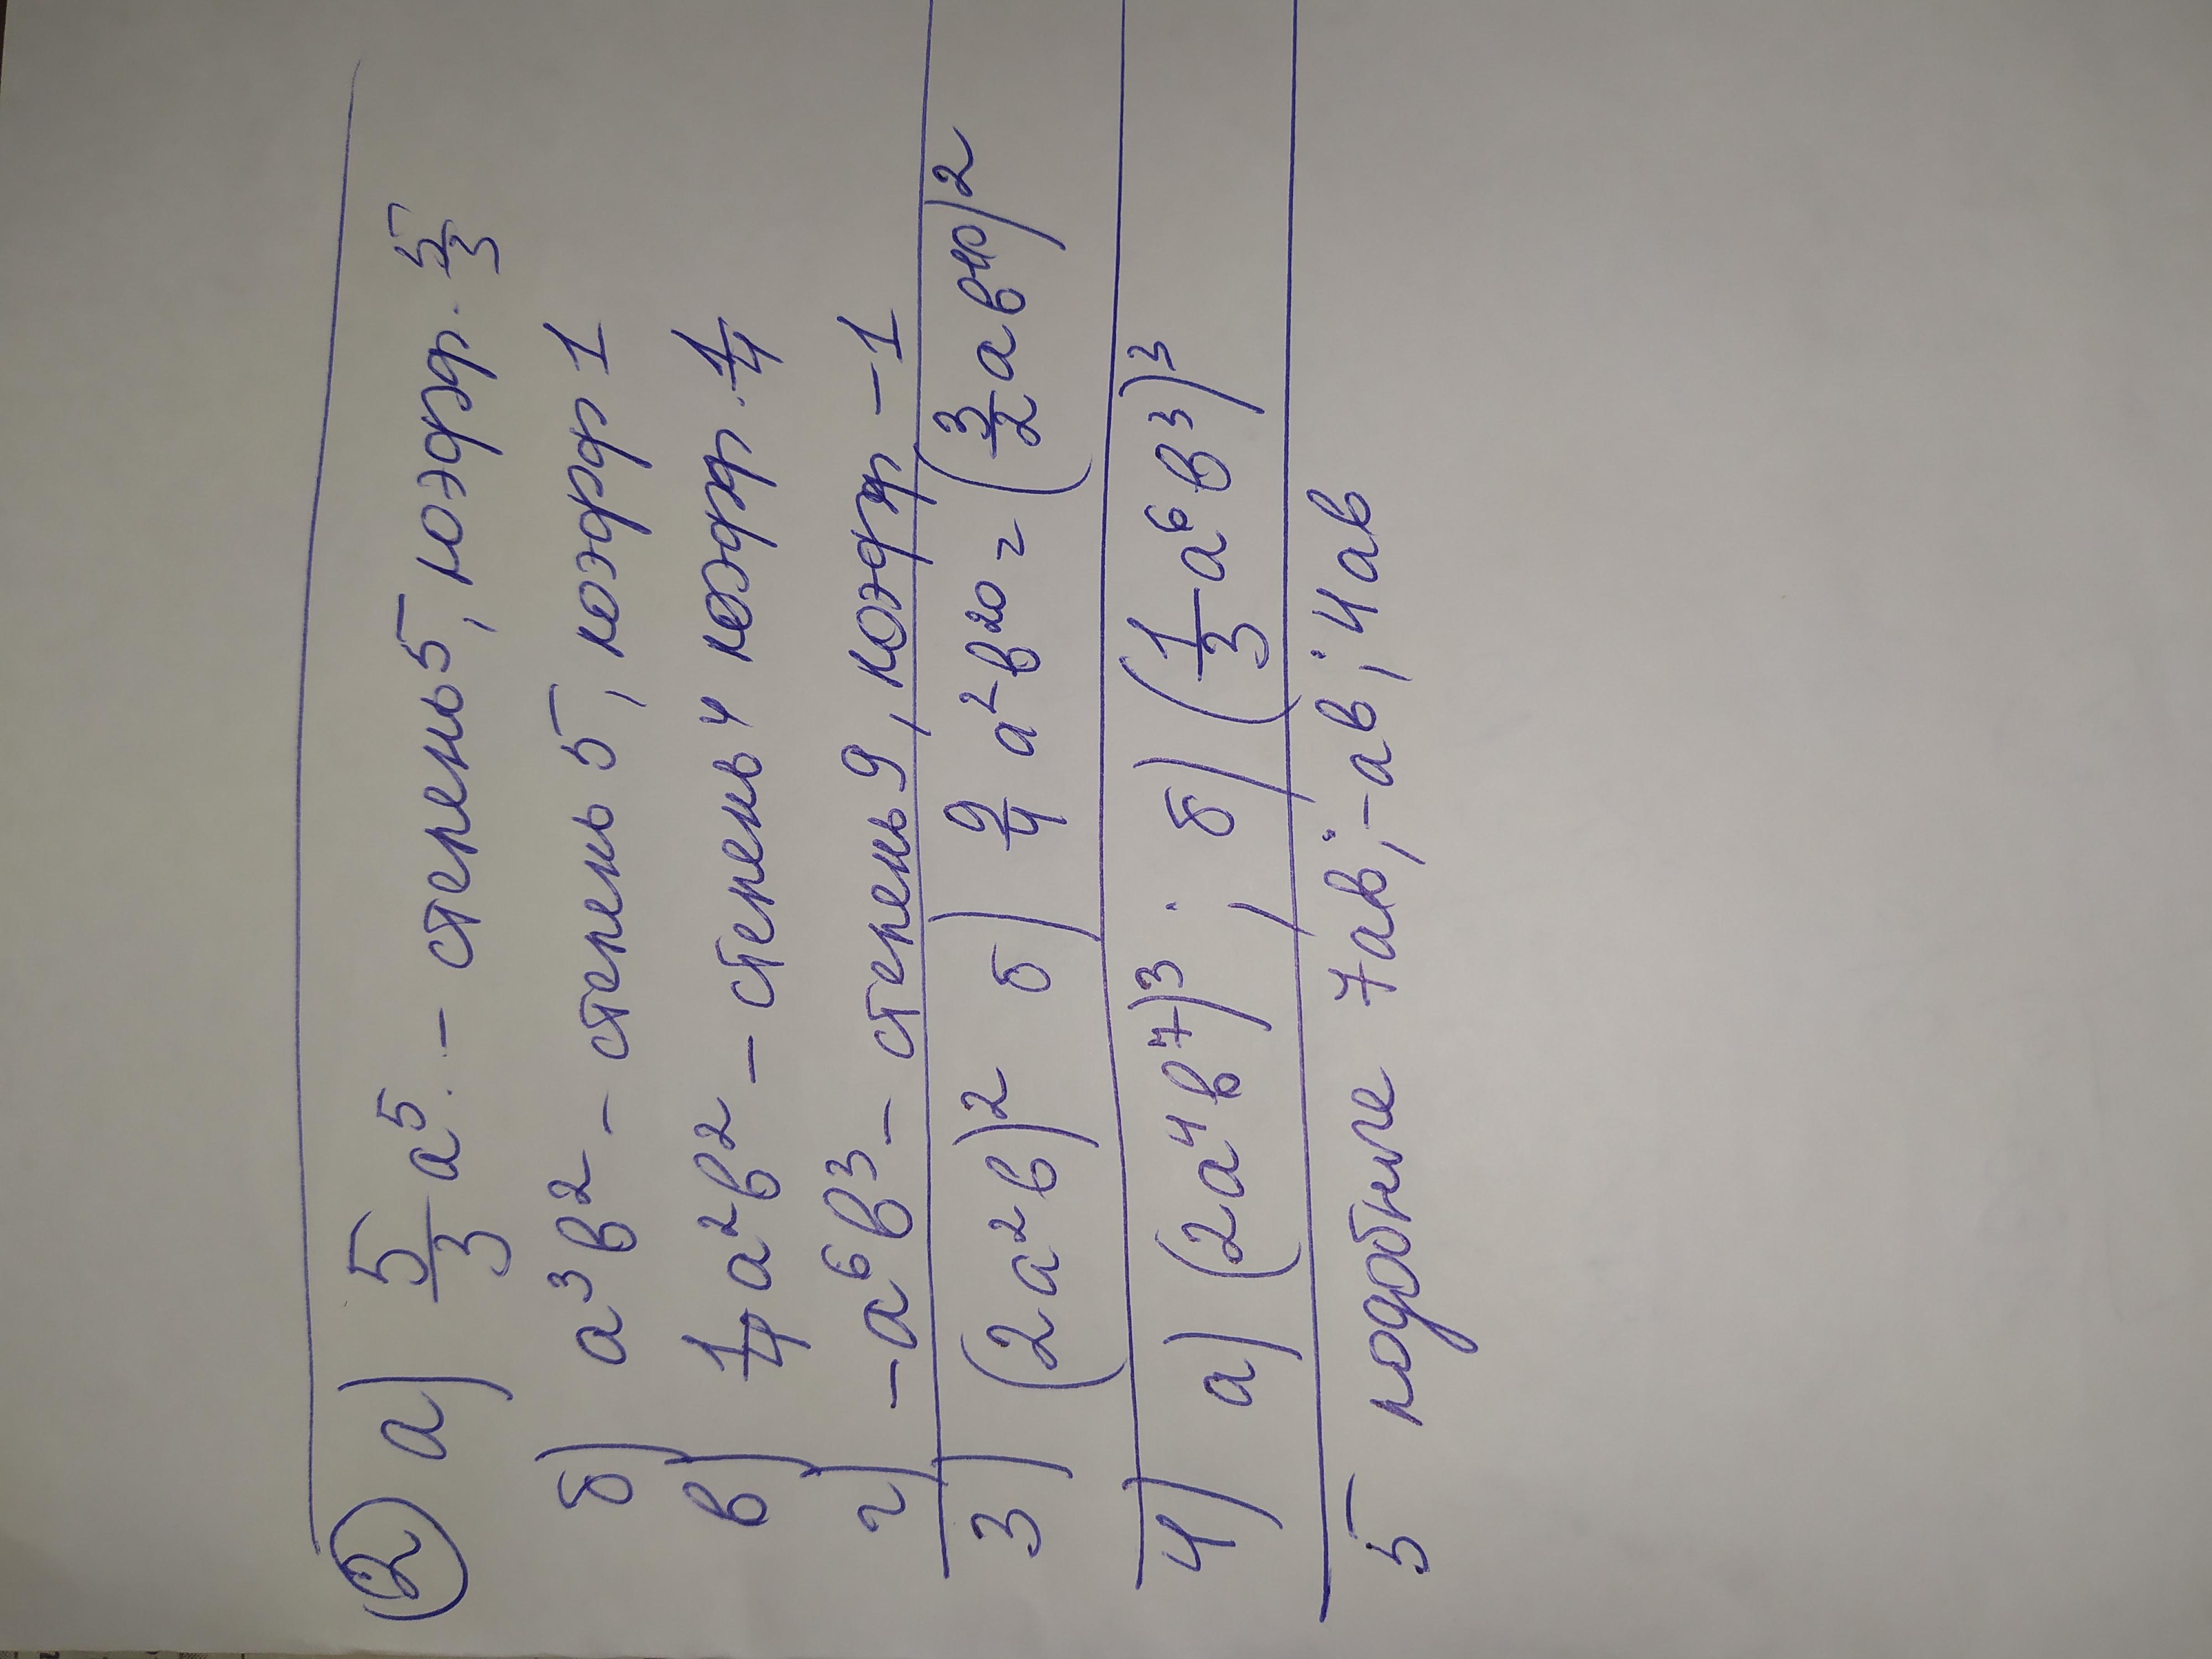 2 а) 5/3 a⁵ - степень 5, коэфф. 5/3
б) a³b² - степень 5, коэфф 1
в) 1/4 a²b² - степень 4 коэфф. 1/4
г) -a⁶b³ - степень 9, коэфф -1
3) (2a²b)² б) 9/4 a²b²⁰ = (3/2 ab¹⁰)²
4) а) (2a⁴b⁷)³; б) (1/3 a⁶b³)³
5 подобные 7ab; -ab; 4ab